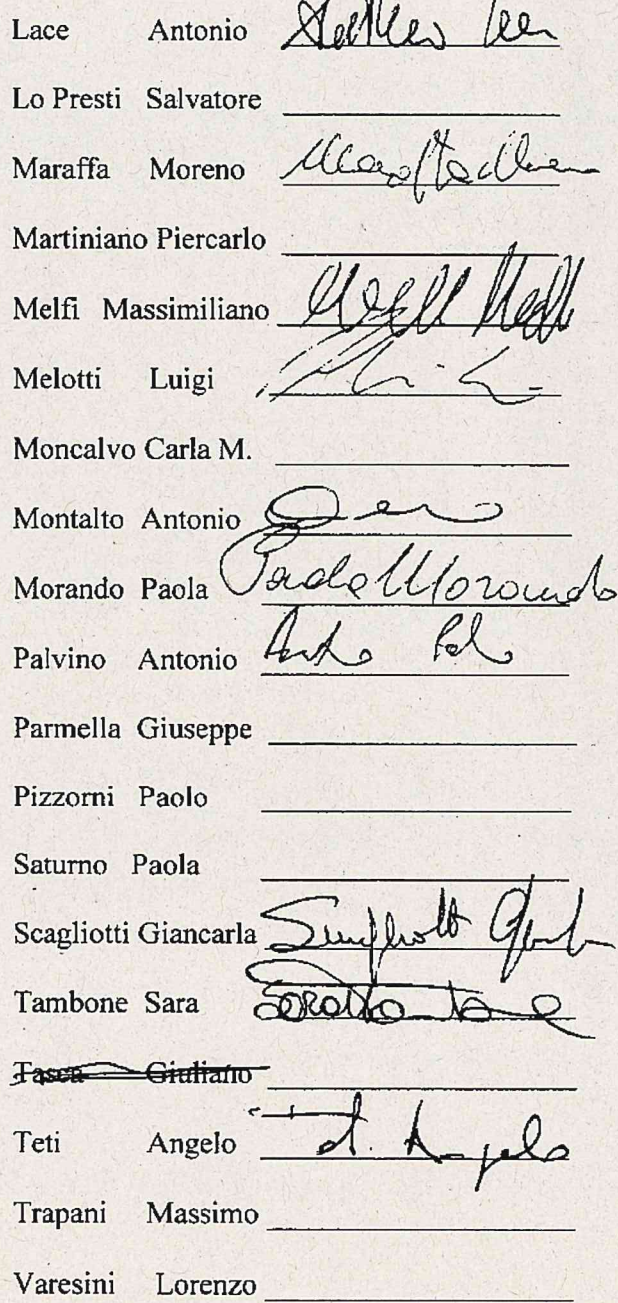 Lace Antonio
Lo Presti Salvatore
Maraffa Moreno
Martiniano Piercarlo
Melfi Massimiliano
Melotti Luigi
Moncalvo Carla M.
Montalto Antonio
Morando Paola Paola Morando
Palvino Antonio
Parmella Giuseppe
Pizzorni Paolo
Saturno Paola
Scagliotti Giancarla
Tambone Sara
Tasca Giuliano
Teti Angelo T. Angelo
Trapani Massimo
Varesini Lorenzo